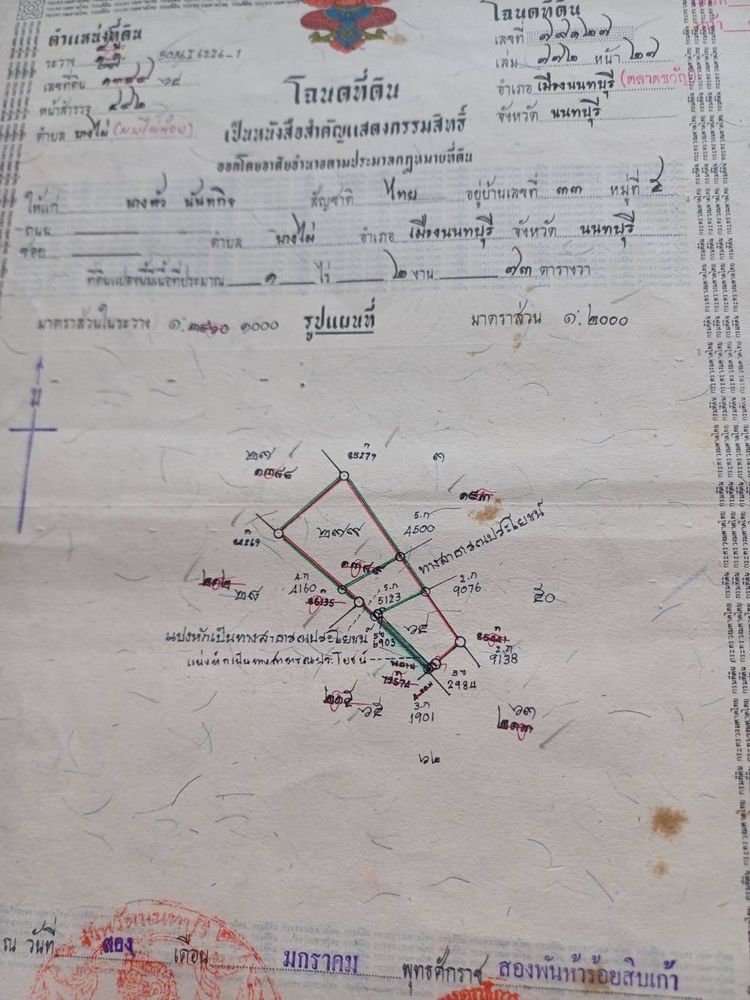 ตำแหน่งที่ดิน
ระวาง 5036 I 6226-1
เลขที่ดิน ๖๔
หน้าสำรวจ ๔๗๒
ตำบล บางไผ่
โฉนดที่ดิน
เลขที่ ๗๙๑๒๗
เล่ม ๗๗๒ หน้า ๒๗
อำเภอ เมืองนนทบุรี (ตลาดขวัญ)
จังหวัด นนทบุรี
โฉนดที่ดิน
เป็นหนังสือสำคัญแสดงกรรมสิทธิ์
ออกโดยอาศัยอำนาจตามประมวลกฎหมายที่ดิน
ให้แก่ สัญชาติ ไทย อยู่บ้านเลขที่ ๓๓ หมู่ที่ ๕
ถนน
ซอย ตำบล บางไผ่ อำเภอ เมืองนนทบุรี จังหวัด นนทบุรี
ที่ดินแปลงนี้มีเนื้อที่ประมาณ ๑ ไร่ ๒ งาน ๗๓ ตารางวา
มาตราส่วนในระวาง ๑: ๑๐๐๐ รูปแผนที่ มาตราส่วน ๑:๒๐๐๐
น
๒๗
85279
๓
๒๙๙
5.ก
4500
ทางสาธารณประโยชน์
4.ก
4160
5.ก
5123
2.ก
9076
๒๘
๕๐
๖๔
แบ่งหักเป็นทางสาธารณประโยชน์
5ข
6903
แบ่งหักเป็นทางสาธารณประโยชน์
2.ก
9138
3ข
2984
๖๕
3.ก
1901
๖๓
๖๒
ณ วันที่ สอง เดือน มกราคม พุทธศักราช สองพันห้าร้อยสิบเก้า